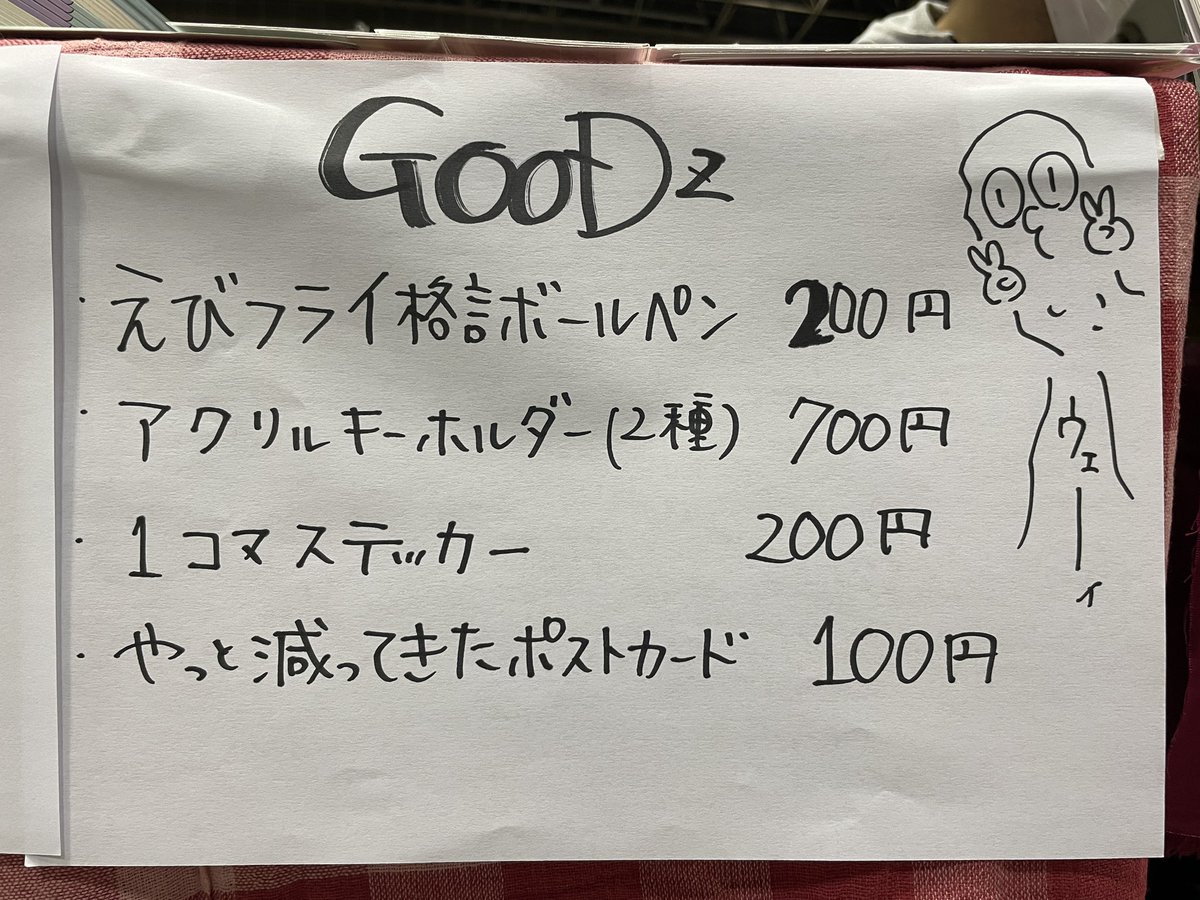 GooDz
・えびフライ格言ボールペン 200円
・アクリルキーホルダー(2種) 700円
・1コマステッカー 200円
・やっと減ってきたポストカード 100円
ウェーイ